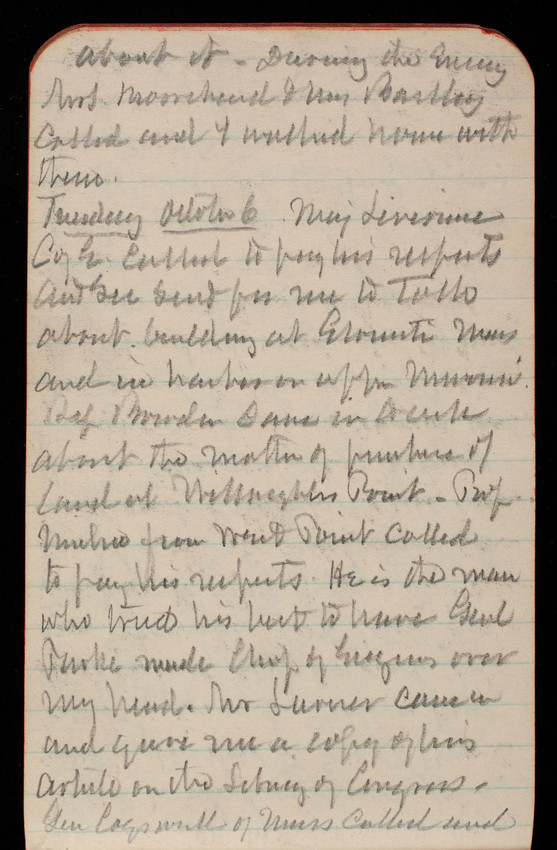 about it - During the Evening
Mrs. Moorehead & Miss Bartley
Called and I walked home with
them.
Tuesday October 6 Maj Livermore
Called to pay his respects
and Genl sent for me to talk
about building at Mass
and in harbor on upper Missouri.
came in
about the matter of purchase of
land at Willoughbys Point - Prof
from West Point called
to pay his respects. He is the man
who tried his best to have Genl
Parke made Chief of Engineers over
my head. Mr Turner came in
and gave me a copy of his
article on the Library of Congress.
Gen Cogswell of Mass called and